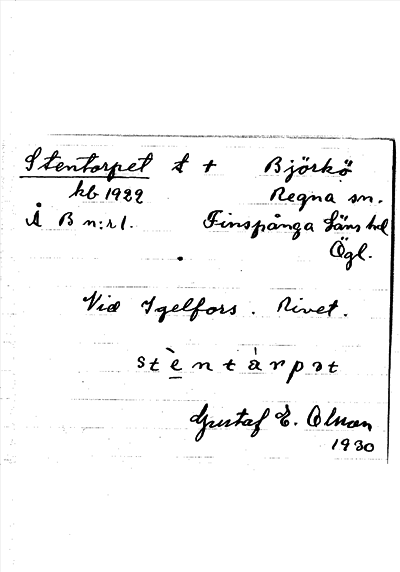 Stentorpet t + Björkö
kb 1922 Regna sn.
Å B n:r 1. Finspånga läns hd
Ögl.
Vid Igelfors. Rivet.
stèntàrpət
Gustaf E. Olsson
1930